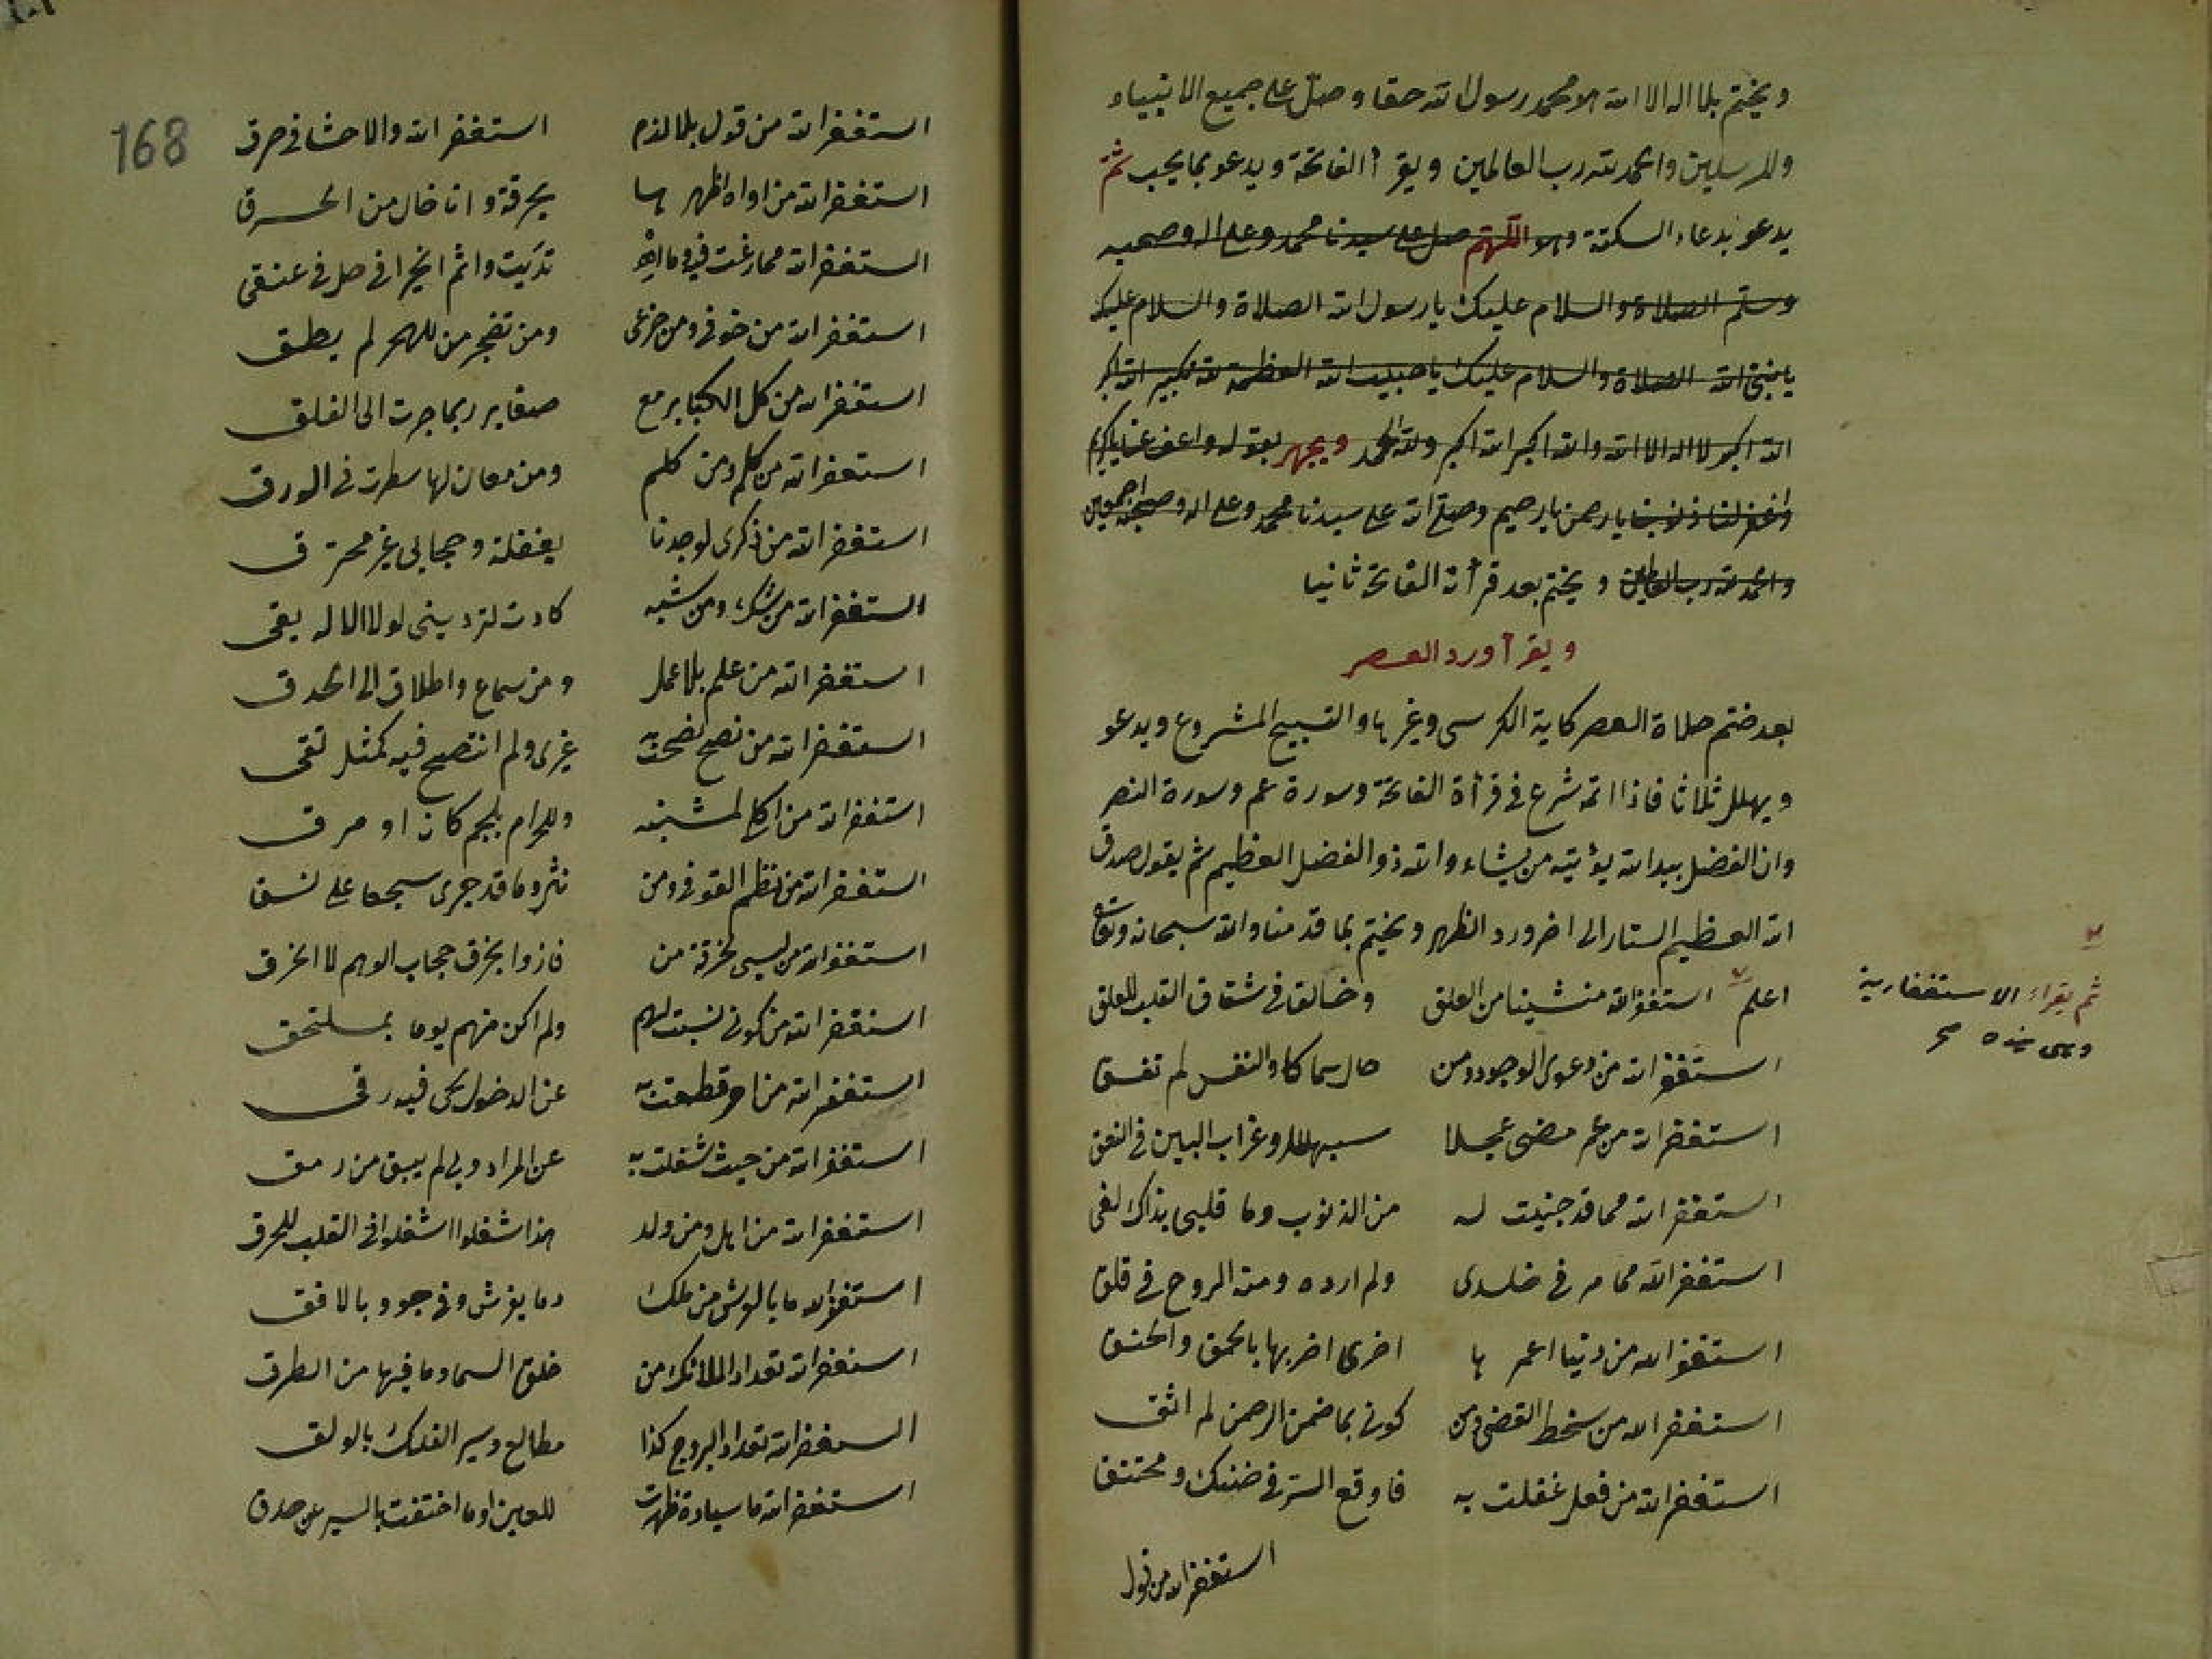 ويختم بلا اله الا الله الا محمد رسول الله حقا وصل على جميع الانبياء
والمرسلين والحمد لله رب العالمين ويقرأ الفاتحة ويدعو بما يجب ثم
يدعو بدعاء السكتة وهو اللهم صل على سيدنا محمد وعلى اله وصحبه
وسلم الصلاة والسلام عليك يا رسول الله الصلاة والسلام عليك
يا نبي الله الصلاة والسلام عليك يا حبيب الله العظمة لله تكبير الله اكبر
الله اكبر لا اله الا الله والله اكبر الله اكبر ولله الحمد ويجهر بقوله واعف عنا يا كريم
واغفر لنا ذنوبنا يا رحمن يا رحيم وصلى الله على سيدنا محمد وعلى اله وصحبه اجمعين
والحمد لله رب العالمين ويختم بعد قرأة الفاتحة ثانيا
ويقرأ ورد العصر
بعد ختم صلاة العصر كاية الكرسي وغيرها والتسبيح المشروع ويدعو
ويهلل ثلاثا فاذا اتمه شرع في قرأة الفاتحة وسورة عم وسورة النصر
وان الفضل بيد الله يؤتيه من يشاء والله ذو الفضل العظيم ثم يقول صدق
الله العظيم الستار الى اخر ورد الظهر ويختم بما قدمنا والله سبحانه وتعالى
اعلم استغفر الله منشينا من العلق وخالقا في شقاق القلب للعلق
ثم يقراء الاستغفارية
وهى هذه صح
استغفر الله من دعوى الوجود ومن حال سما كا والنفس لم تفق
استغفر الله من عمر مضى عجلا سبهللا وغراب البين في النعق
استغفر الله مما قد جنيت له من الذنوب وما قلبي بذاك لقى
استغفر الله مما مر في خلدى ولم ارده ومنه الروح في قلق
استغفر الله من دنيا اعمرها اخرى اخربها بالحمق والحنق
استغفر الله من سخط القضى ومن كونى بما ضمن الرحمن لم اثق
استغفر الله من فعل غفلت به فاوقع الستر في ضنك ومختنق
استغفر الله من قول
168
استغفر الله من قول بلا لذم استغفر الله والاحشا في حرق
استغفر الله من اواه اظهرها بحرقة وانا خال من الحرق
استغفر الله مما رغت فيه وما تديت واثم الخير في حل في عنقى
استغفر الله من خوفى ومن جزعى ومن تضجر من للهجر لم يطق
استغفر الله من كل الكبائر مع صغاير ربما جرت الى الغلق
استغفر الله من كلم ومن كلم ومن معان لها سطرت في الورق
استغفر الله من ذكرى لوجدنا بغفلة وحجابى غير محترق
استغفر الله من شك ومن شبه كادت لتردينى لولا الاله يقى
استغفر الله من علم بلا عمل ومن سماع واطلاق الى الحدق
استغفر الله من نصح نصحت به غيرى ولم انتصح فيه كمثل تقى
استغفر الله من اكل لمشتبه وللحرام بلحم كان او مرق
استغفر الله من نظم القوفى ومن نثر وما قد جرى سجعا على نسق
استغفر الله من لبسى لخرقة من فازوا بخرق حجاب الوهم لا الخرق
استغفر الله من كونى نسبت لهم ولم اكن منهم يوما بملتحق
استغفر الله من امر قطعت به عن الدخول لحى فيه رقى
استغفر الله من حيث شغلت به عن المراد وبى لم يبق من رمق
استغفر الله من اهل ومن ولد هذا شغلوا اشغلوا في القلب للحرق
استغفر الله ما بالعرش من ملك وما بفرش وفى جو وبالافق
استغفر الله تعداد الملائك من خلق السما وما فيها من الطرق
استغفر الله تعداد البروج كذا مطالع وسير الفلك بالولق
استغفر الله ما سيارة ظهرت للعين او ما اختفت بالسير عن حدق